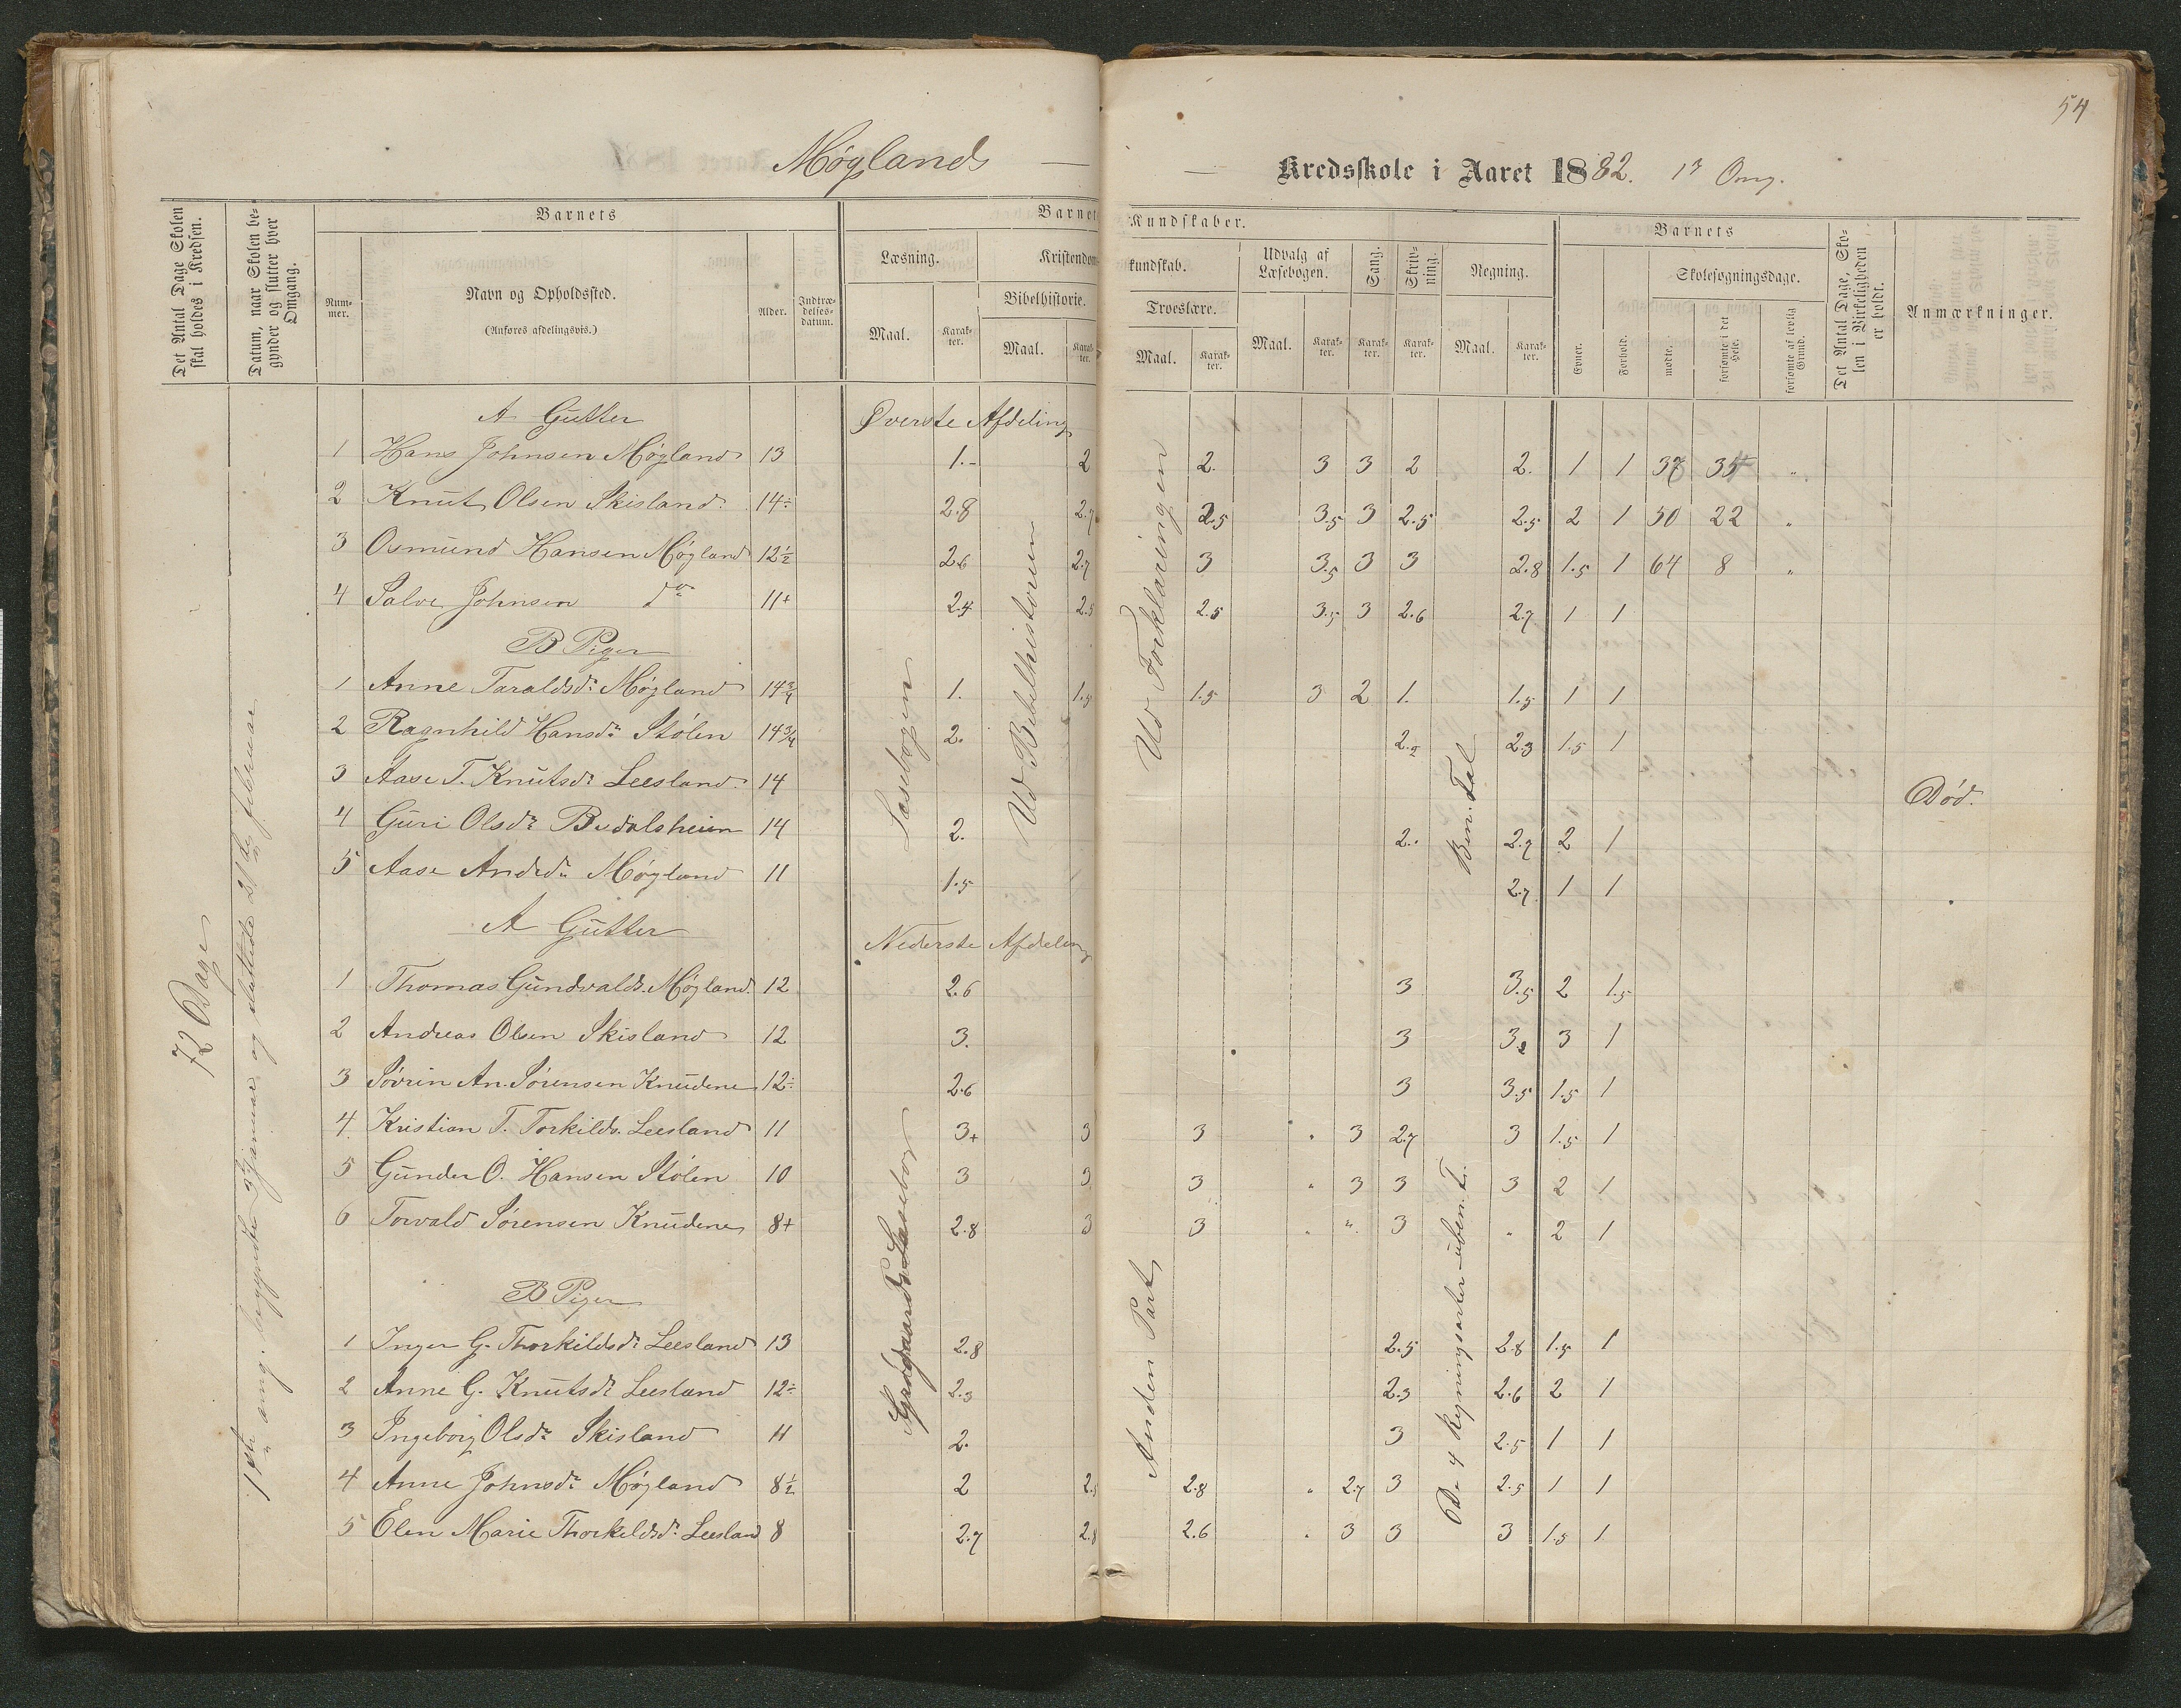 54
Møglands — — Kredsskole i Aaret 1882. 1ste Omg.
Det Antal Dage Skolen skal holdes i Kredsen.
Datum, naar Skolen begynder og slutter hver Omgang.
Barnets
Nummer.
Navn og Opholdssted.
(Anføres afdelingsvis.)
Alder.
Indtrædelsesdatum.
Barnets Kundskaber.
Læsning.
Maal.
Karakter.
Kristendomskundskab.
Bibelhistorie.
Maal.
Karakter.
Troeslære.
Maal.
Karakter.
Udvalg af Læsebogen.
Maal.
Karakter.
Sang.
Karakter.
Skrivning.
Karakter.
Regning.
Maal.
Karakter.
Barnets
Evner.
Forhold.
Skolesøgningsdage.
mødte.
forsømte i det Hele.
forsømte af lovlig Grund.
Det Antal Dage, Skolen i Virkeligheden er holdt.
Anmærkninger.
72 Dage
1ste omg. begyndte 3die Januar og sluttede 21de februar
A Gutter Øverste Afdeling
1 Hans Johnsen Møgland 13 1.- 2 2. 3 3 2 2. 1 1 37 35 "
2 Knut Olsen Skisland 14÷ 2.8 2.7 2.5 3.5 3 2.5 2.5 2 1 50 22 "
3 Osmund Hansen Møgland 12½ 2.6 2.7 3 3.5 3 3 2.8 1.5 1 64 8 "
4 Salve Johnsen do 11+ 2.4 2.5 2.5 3.5 3 2.6 2.7 1 1
B Piger
1 Anne Taraldsdr Møgland 14¾ 1. 1.5 1.5 3 2 1. 1.5 1 1
2 Ragnhild Hansdr Stølen 14¾ 2. 2.2 2.3 1.5 1
3 Aase T. Knutsdr Leesland 14 Død.
4 Guri Olsdr Bedalsheim 14 2. 2.. 2.7 2 1
5 Aase Andrdr Møgland 11 1.5 2.7 1 1
Læsebogen
Ud Bibelhistorien
Ud Forklaringen
Ben. Tal
A Gutter Nederste Afdeling
1 Thomas Gundvalds. Møgland 12 2.6 3 3.5 2 1.5
2 Andreas Olsen Skisland 12 3. 3 3.2 3 1
3 Søvrin An. Sørensen Knudene 12÷ 2.6 3 3.5 1.5 1
4. Kristian T. Torkilds. Leesland 11 3+ 3 3 " 3 2.7 3 1.5 1
5 Gunder O. Hansen Stølen 10 3 3 3 " 3 3 3 2 1
6 Torvald Sørensen Knudene 8+ 2.8 3 3 " " 3 " 2 1
B Piger
1 Inger G. Thorkildsdr Leesland 13 2.8 2.5 2.8 1.5 1
2 Anne G. Knutsdr Leesland 12÷ 2.3 2.3 2.6 2 1
3 Ingeborg Olsdr Skisland 11 2. 3 2.5 1 1
4 Anne Johnsdr Møgland 8½ 2 2.5 2.8 " 2.7 3 2.5 1 1
5 Elen Marie Thorkildsdr Leesland 8 2.7 2.8 2.6 " 3 3 3 1.5 1
Læsebog
Anden Part
De 4 Regningsarter uben. T.